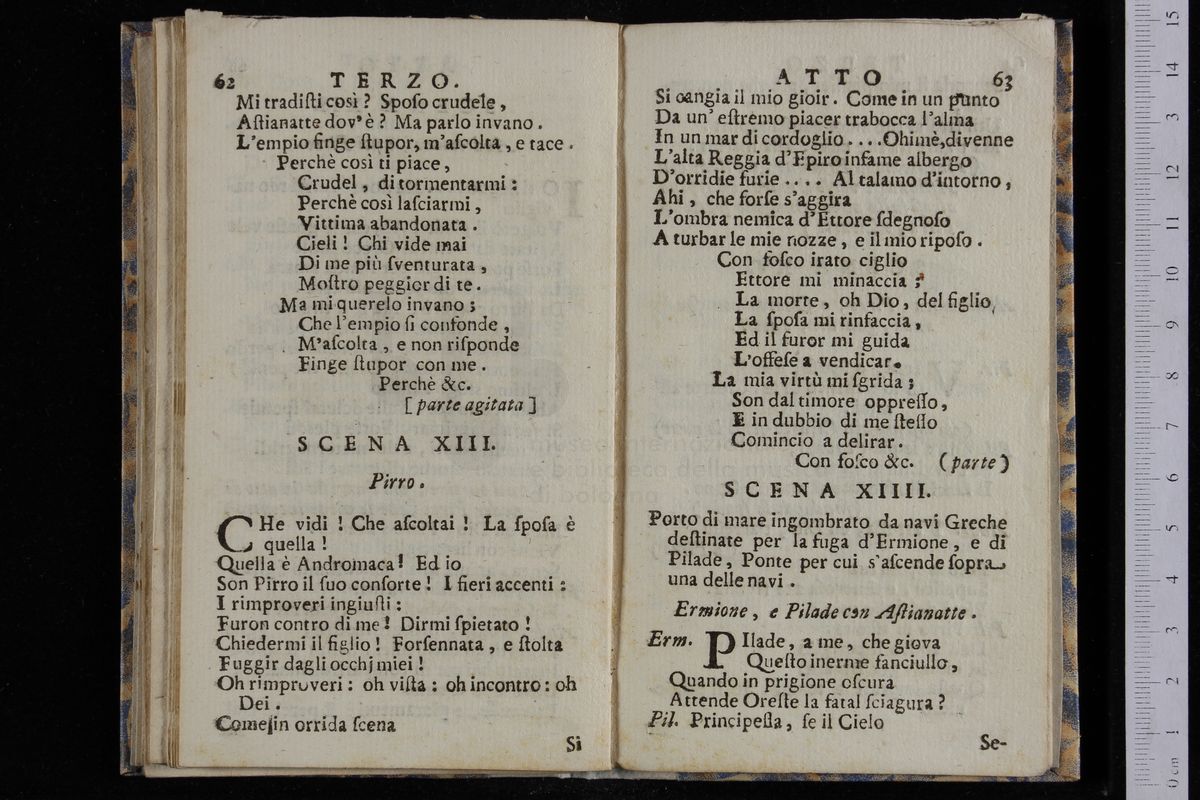 62 TERZO.
Mi tradiſti così? Spoſo crudele,
Aſtianatte dov'è? Ma parlo invano.
L'empio finge ſtupor, m'aſcolta, e tace.
Perchè così ti piace,
Crudel, di tormentarmi:
Perchè così laſciarmi,
Vittima abandonata.
Cieli! Chi vide mai
Di me più ſventurata,
Moſtro peggior di te.
Ma mi querelo invano;
Che l'empio ſi confonde,
M'aſcolta, e non riſponde
Finge ſtupor con me.
Perchè &c.
[parte agitata]
SCENA XIII.
Pirro.
CHe vidi! Che aſcoltai! La ſpoſa è
quella!
Quella è Andromaca! Ed io
Son Pirro il ſuo conſorte! I fieri accenti:
I rimproveri ingiuſti:
Furon contro di me! Dirmi ſpietato!
Chiedermi il figlio! Forſennata, e ſtolta
Fuggir dagli occhj miei!
Oh rimproveri: oh viſta: oh incontro: oh
Dei.
Come in orrida ſcena
Si
ATTO 63
Si cangia il mio gioir. Come in un punto
Da un' eſtremo piacer trabocca l'alma
In un mar di cordoglio.... Ohimè, divenne
L'alta Reggia d'Epiro infame albergo
D'orridie furie.... Al talamo d'intorno,
Ahi, che forſe s'aggira
L'ombra nemica d'Ettore ſdegnoſo
A turbar le mie nozze, e il mio ripoſo.
Con foſco irato ciglio
Ettore mi minaccia;
La morte, oh Dio, del figlio,
La ſpoſa mi rinfaccia,
Ed il furor mi guida
L'offeſe a vendicar.
La mia virtù mi ſgrida;
Son dal timore oppreſſo,
E in dubbio di me ſteſſo
Comincio a delirar.
Con foſco &c. (parte)
SCENA XIIII.
Porto di mare ingombrato da navi Greche
deſtinate per la fuga d'Ermione, e di
Pilade, Ponte per cui s'aſcende ſopra
una delle navi.
Ermione, e Pilade con Aſtianatte.
Erm. PIlade, a me, che giova
Queſto inerme fanciullo,
Quando in prigione oſcura
Attende Oreſte la fatal ſciagura?
Pil. Principeſſa, ſe il Cielo
Se-
museo internazionale
e biblioteca della musica
di bologna
15
14
3
12
11
10
9
8
7
6
5
4
3
2
1
0 cm